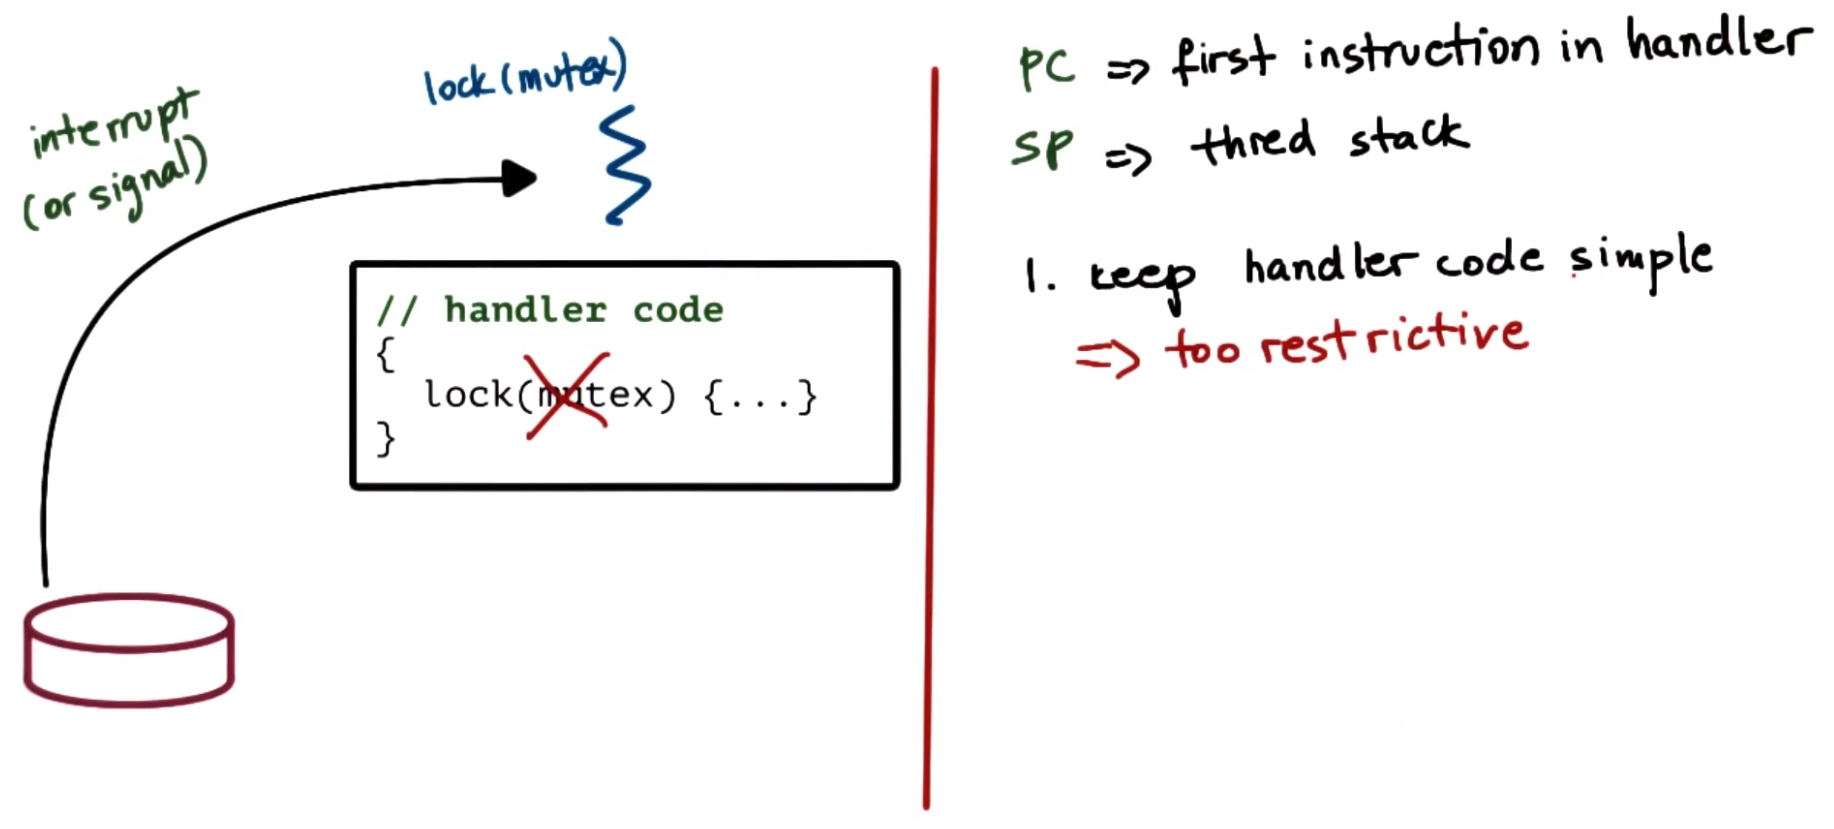 interrupt
(or signal)
lock(mutex)
// handler code
{
lock(mutex) {...}
}
PC => first instruction in handler
SP => thred stack
1. keep handler code simple
=> too restrictive